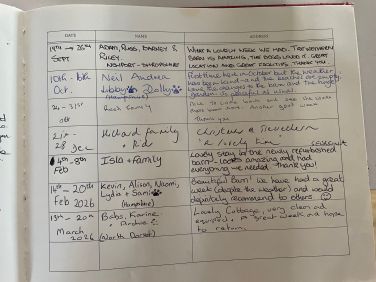 DATE NAME ADDRESS
19TH → 26TH
SEPT
ADAM, RUSS, BARNEY &
RILEY.
NEWPORT - SHROPSHIRE
WHAT A LOVELY WEEK WE HAD. THE WEATHER
BEEN AMAZING, THE DOGS LOVED IT. GREAT
LOCATION AND GREAT FACILITIES. THANK YOU.
10th - 
Oct.
Neil Andrea
Libby Dolly
(Hampshire)
First time here in October but the weather
has been kind and the beaches are empty.
Love the changes to the barn and the
24 - 31st
oct
Rush family
Nice to come back and see the works
Another great week
Thank you
21st -
28 Dec
family
Christmas
& lovely
4th - 8th
Feb
Isla + family
Lovely stay in the newly refurbished
barn - looks amazing and had
everything we needed. Thank you!
14th - 20th
Feb 2026
Kevin, Alison, Naomi,
Lydia + Sam
(Hampshire)
Beautiful Barn! We have had a great
week (despite the weather) and would
definitely recommend to others ☺
13th - 20th
March
2026
Babs, Karine
(North Dorset)
Lovely Cottage, very clean and
equipped. A great week and hope
to return.